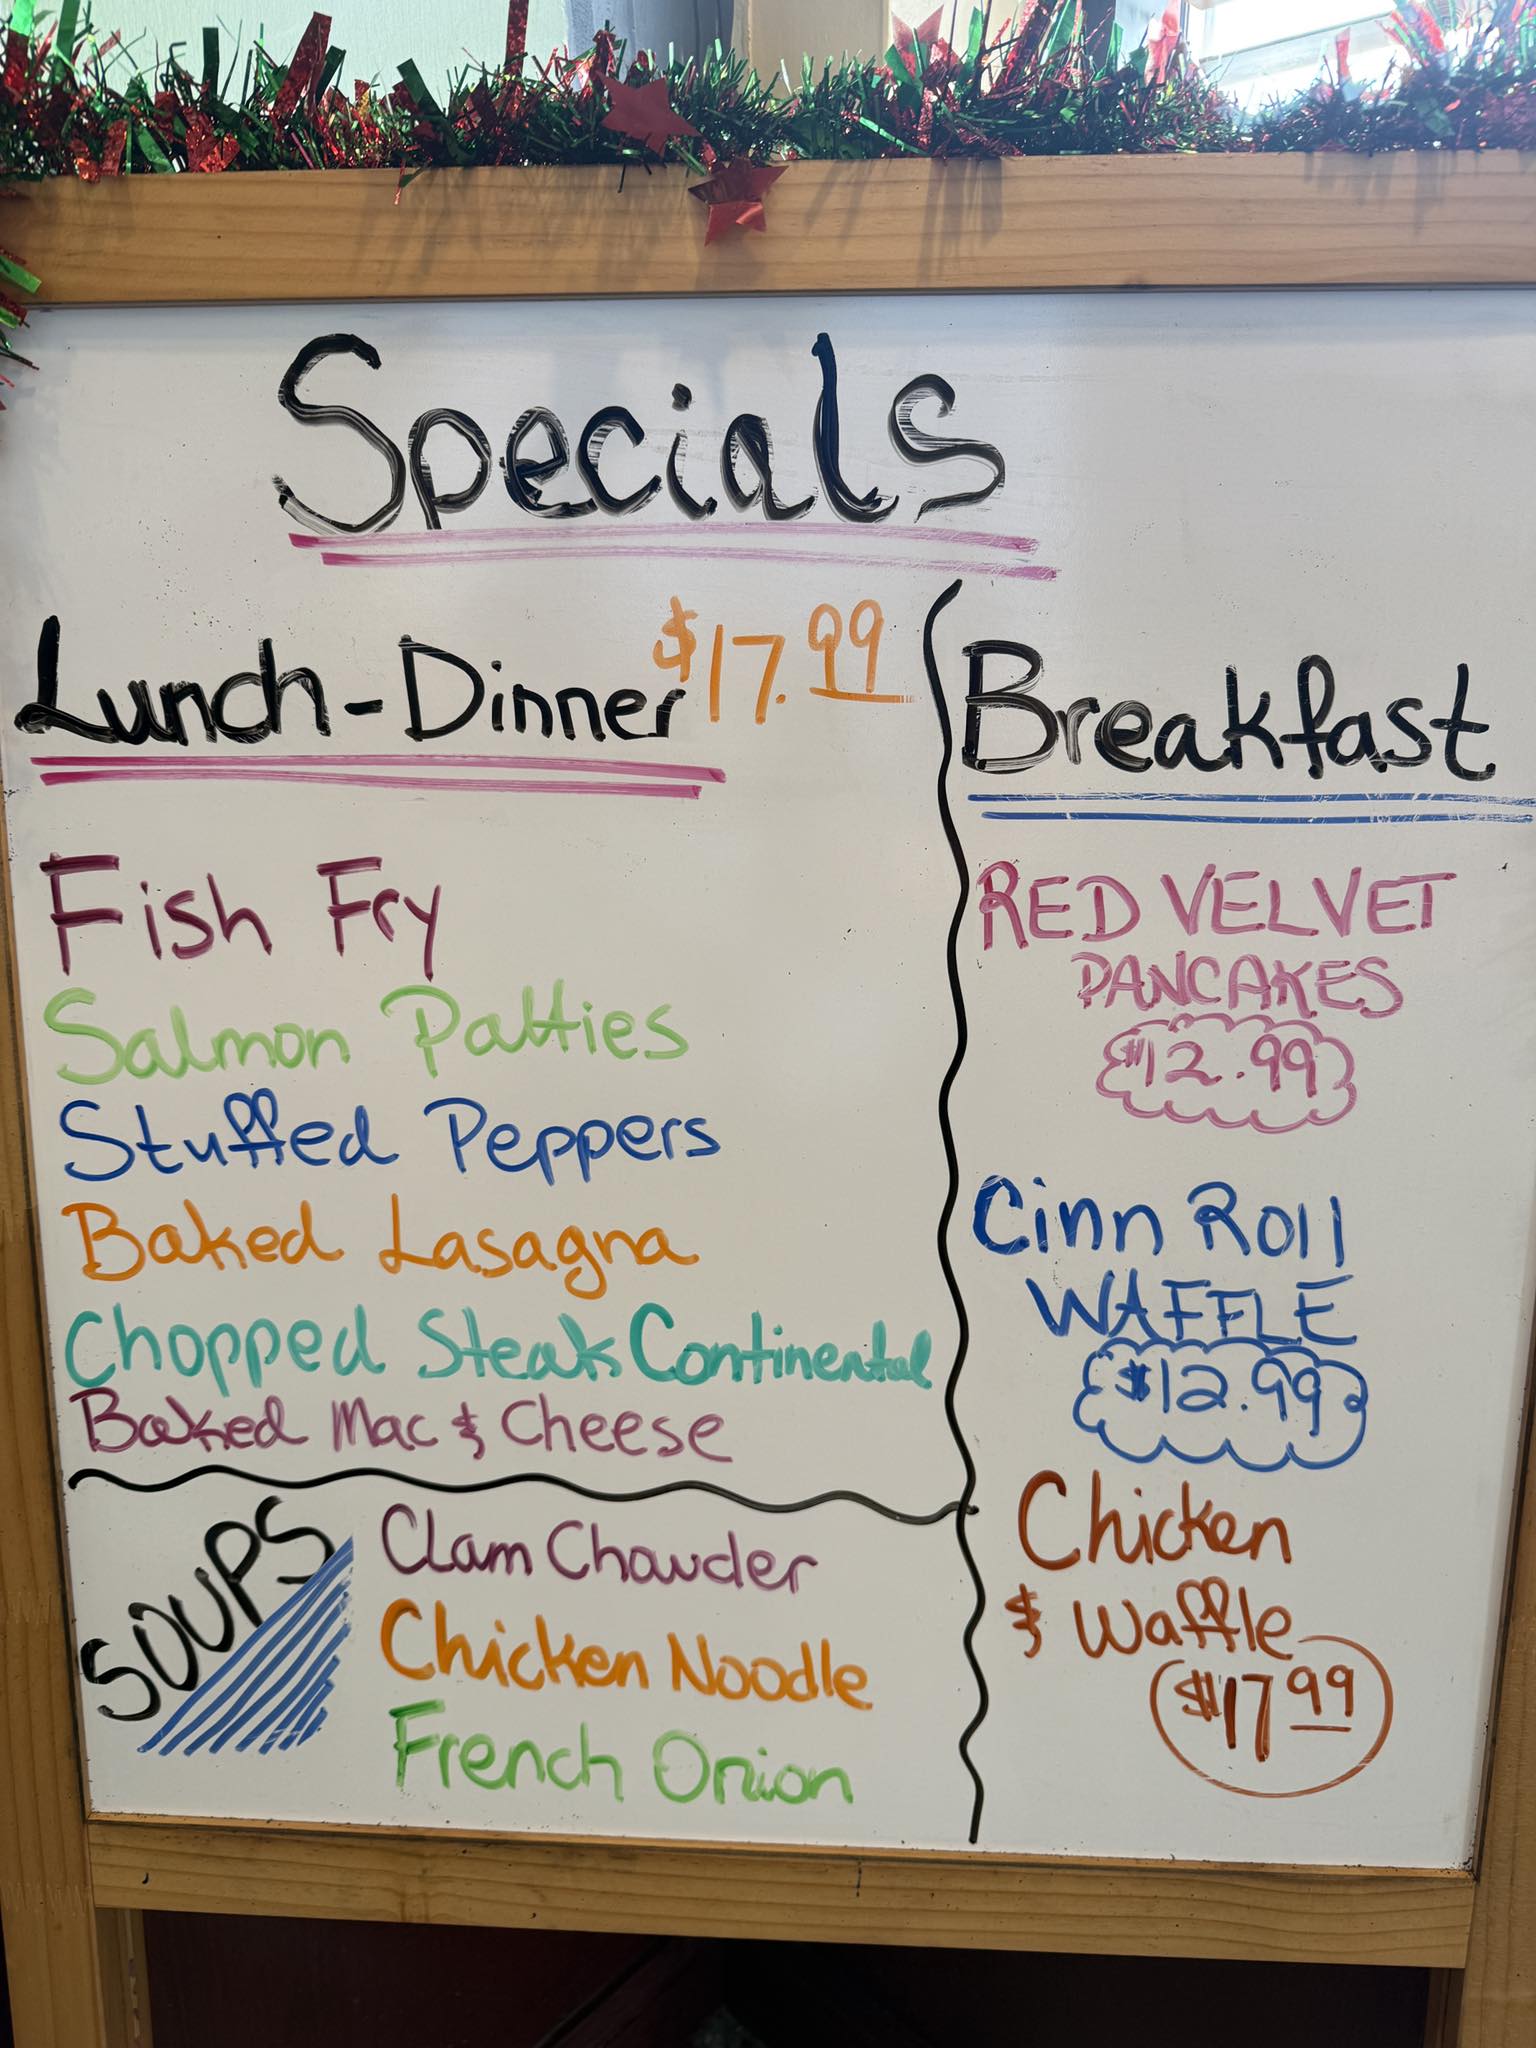 Specials
Lunch-Dinner $17.99
Fish Fry
Salmon Patties
Stuffed Peppers
Baked Lasagna
Chopped Steak Continental
Baked Mac & Cheese
SOUPS
Clam Chowder
Chicken Noodle
French Onion
Breakfast
RED VELVET
PANCAKES
$12.99
Cinn Roll
WAFFLE
$12.99
Chicken
& Waffle
$17.99